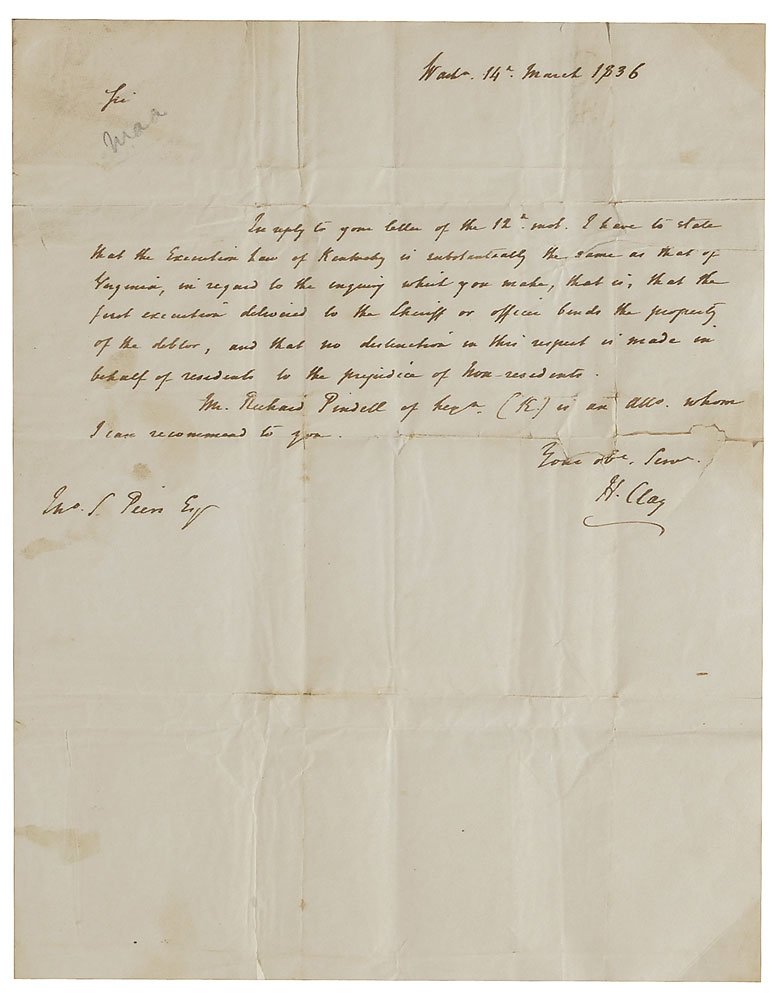 Washn. 14h. March 1836
Sir
In reply to your letter of the 12h. inst. I have to state
that the Execution Law of Kentucky is substantially the same as that of
Virginia, in regard to the inquiry which you make, that is, that the
first execution delivered to the Sheriff or officer binds the property
of the debtor, and that no distinction in this respect is made in
behalf of residents to the prejudice of Non-residents.
Mr. Richard Pindell of Lexn. (K.) is an Atto. whom
I can recommend to you.
Your obt. Servt.
H. Clay
Jno. S Esq